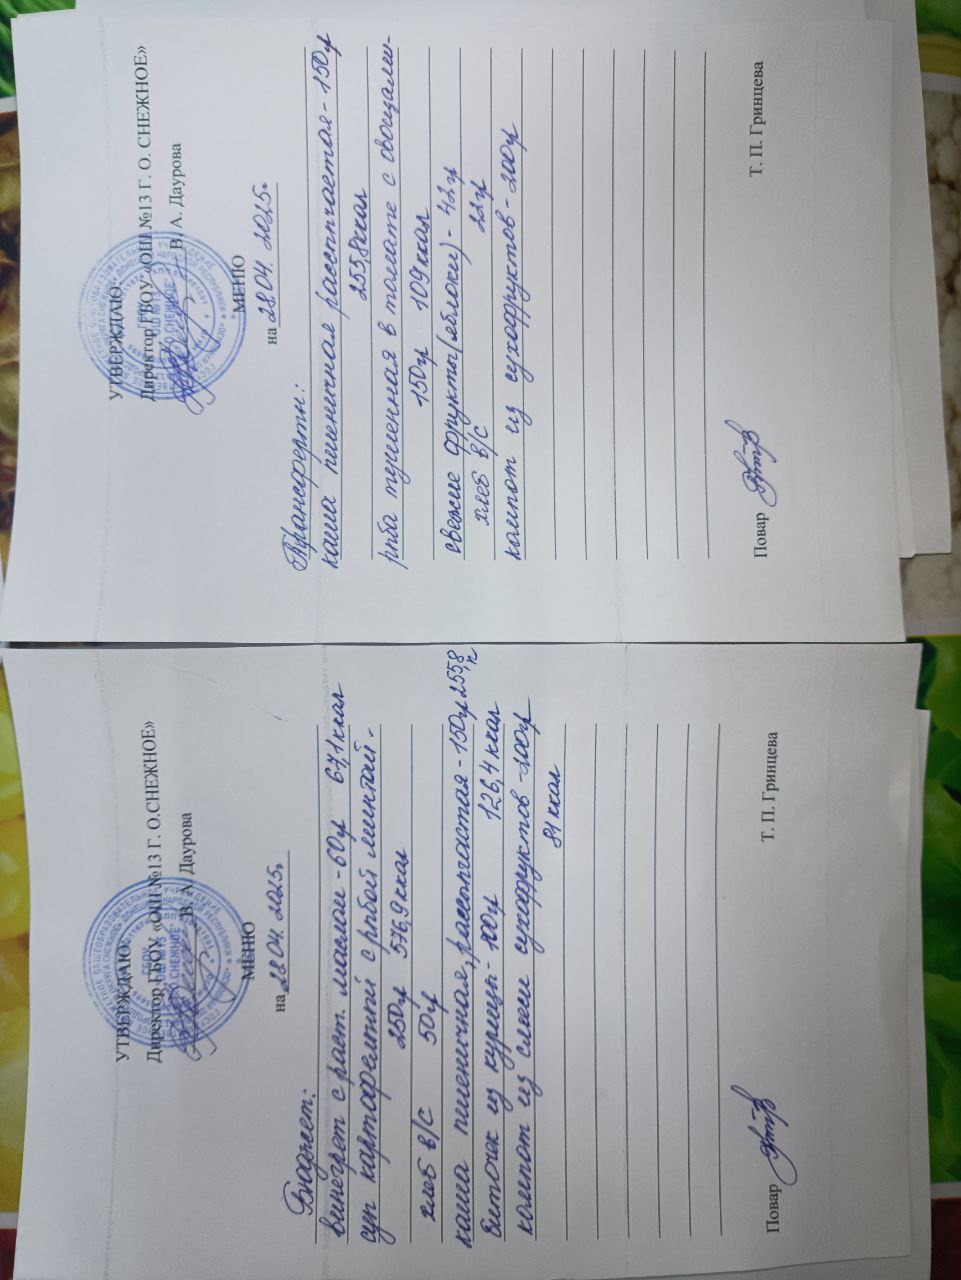 УТВЕРЖДАЮ:
Директор ГБОУ «ОШ №13 Г. О.СНЕЖНОЕ»
В. А. Даурова
МЕНЮ
на 28.04. 2025г
Бюджет:
винегрет с раст. маслом - 60гр 67,1 ккал
суп картофельный с рыбой минтай -
250гр 576,9 ккал
хлеб в/с 50гр
каша пшеничная, рассыпчатая - 150гр 255,8
к
Биточек из курицы - 100гр 126,4 ккал
компот из смеси сухофруктов - 200гр
81 ккал
Повар Т. П. Гринцева
УТВЕРЖДАЮ:
Директор ГБОУ «ОШ №13 Г. О. СНЕЖНОЕ»
В. А. Даурова
МЕНЮ
на 28.04. 2025г
Трансферты:
каша пшеничная рассыпчатая - 150гр
255,8 ккал
рыба тушенная в томате с овощами -
150гр 109 ккал
свежие фрукты (яблоки) - 42гр
хлеб в/с 22гр
компот из сухофруктов - 200гр
Повар Т. П. Гринцева